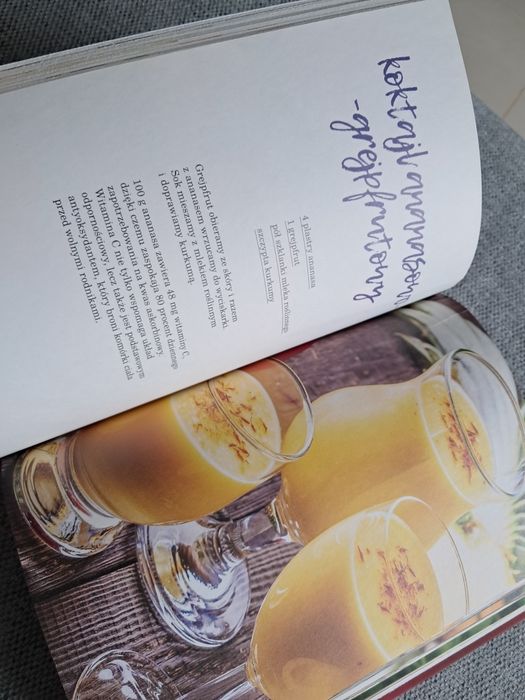 koktajl ananasowo
-grejpfrutowy
4 plastry ananasa
1 grejpfrut
pół szklanki mleka roślinnego
szczypta kurkumy
Grejpfrut obieramy ze skóry i razem
z ananasem wrzucamy do wyciskarki.
Sok mieszamy z mlekiem roślinnym
i doprawiamy kurkumą.
100 g ananasa zawiera 48 mg witaminy C,
dzięki czemu zaspokaja 80 procent dziennego
zapotrzebowania na kwas askorbinowy.
Witamina C nie tylko wspomaga układ
odpornościowy, lecz także jest podstawowym
antyoksydantem, który broni komórki ciała
przed wolnymi rodnikami.